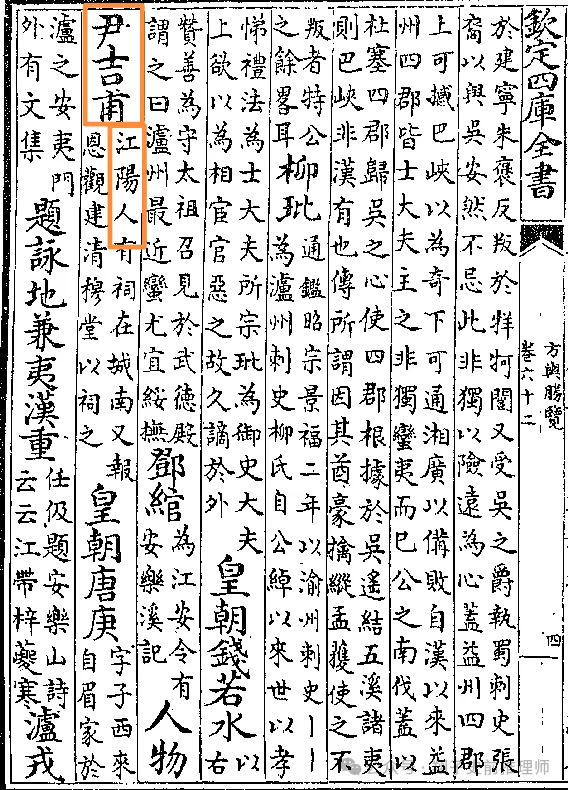 欽定四庫全書
方輿勝覽
卷六十二
四
於建寧朱褒反叛於牂牁闓又受吳之爵執蜀刺史張
裔以與吳安然不忌此非獨以險遠為心蓋益州四郡
上可撼巴峽以為奇下可通湘廣以備敗自漢以來益
州四郡皆士大夫主之非獨蠻夷而已公之南伐蓋以
杜塞四郡歸吳之心使四郡根據於吳遙結五溪諸夷
則巴峽非漢有也傳所謂因其酋豪擒縱孟獲使之不
叛者特公
之餘畧耳
柳玭
通鑑昭宗景福二年以渝州刺史丨丨
為瀘州刺史柳氏自公綽以來世以孝
悌禮法為士大夫所宗玭為御史大夫
上欲以為相宦官惡之故久謫於外
皇朝錢若水
以
右
贊善為守太祖召見於武德殿
謂之曰瀘州最近蠻尤宜綏撫
鄧綰
為江安令有
安樂溪記
人物
尹吉甫
江陽人有祠在城南又報
恩觀建清穆堂以祠之
皇朝唐庚
字子西來
自眉家於
瀘之安夷門
外有文集
題詠地兼夷漢重
任伋題安樂山詩
云云江帶梓夔寒
瀘戎